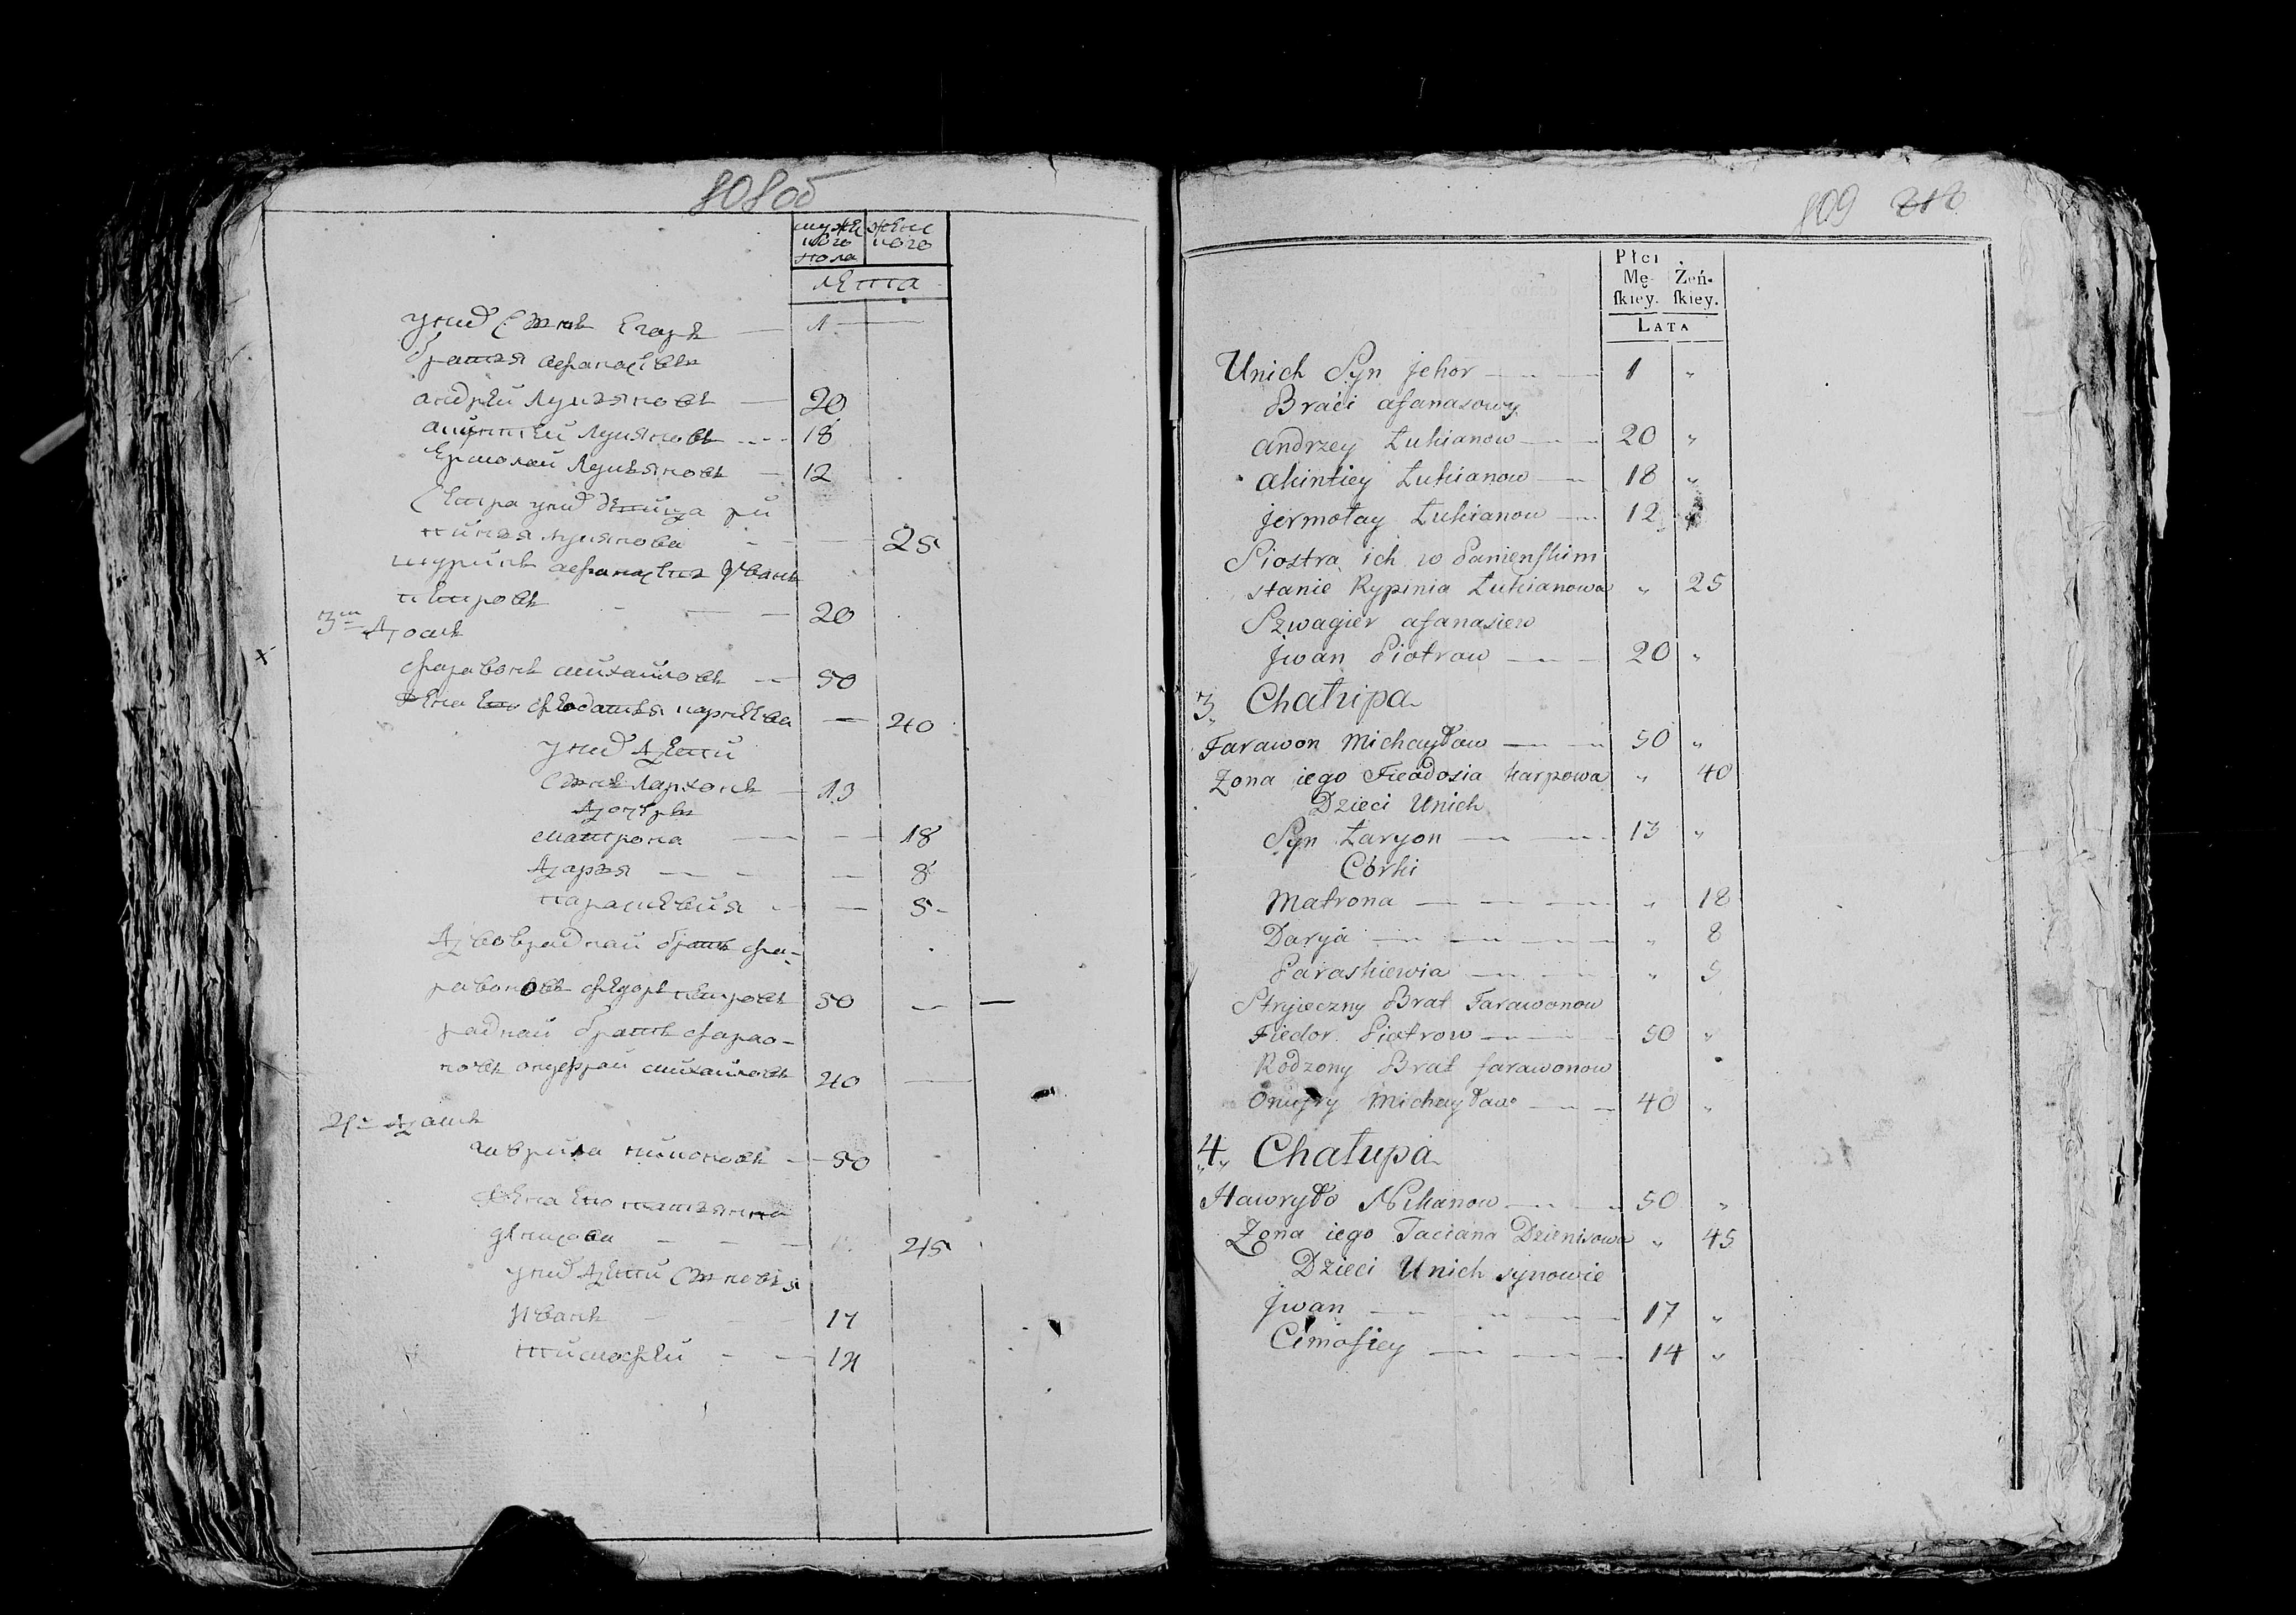 808об
мужеска женс
ного ного
пола
лета
унид Сынъ Егоръ — 1 —
братья афанасьевы
андрей лукьяновъ — 20
акинтей лукяновъ — 18
Ермолай лукьяновъ — 12
Сестра унид девица ри
пиная лукянова — 25
шуринъ афанасьевъ Иванъ
петровъ — 20
3й Домъ
фаравонъ михайловъ — 50
жена Его феодосья карпЕва — 40
унид Дети
Сынъ Ларионъ — 13
Дочери
матрона — 18
Дарья — 8
параскевия — 5
Двоврадная братъ фа-
равоновъ федоръ петровъ 50 —
радная братъ фарао-
новъ онуфрий михайловъ 40 —
4й Домъ
гаврила никоновъ — 50
жена Его татьянна
денисова — 45
унид Дети Сыновья
Иванъ — 17
тимофей — 14
809 212
Płci
Mę- Żeń-
ſkiey. ſkiey.
LATA
Unich Syn Jehor — 1 „
Braći afanasowy
andrzey Łukianow — 20 „
akintiey Łukianow — 18 „
Jermołay Łukianow — 12 „
Siostra ich w Panieńskim
stanie Rypinia Łukianowa „ 25
Szwagier afanasiew
Jwan Piotrow — 20 „
3„ Chałupa
Farawon Michayłow — 50 „
Żona iego Fieadosia karpowa „ 40
Dzieci Unich
Syn Łaryon — 13 „
Córki
Matrona — „ 18
Darya — „ 8
Paraskiewia — „ 5
Stryieczny Brat Farawonow
Fiedor Piotrow — 50 „
Rodzony Brat farawonow
Onufry Michayłow — 40 „
4„ Chałupa
Hawryło Nikanow — 50 „
Żona iego Taciana Dzienisowa „ 45
Dzieci Unich synowie
Jwan — 17 „
Cimofiey — 14 „